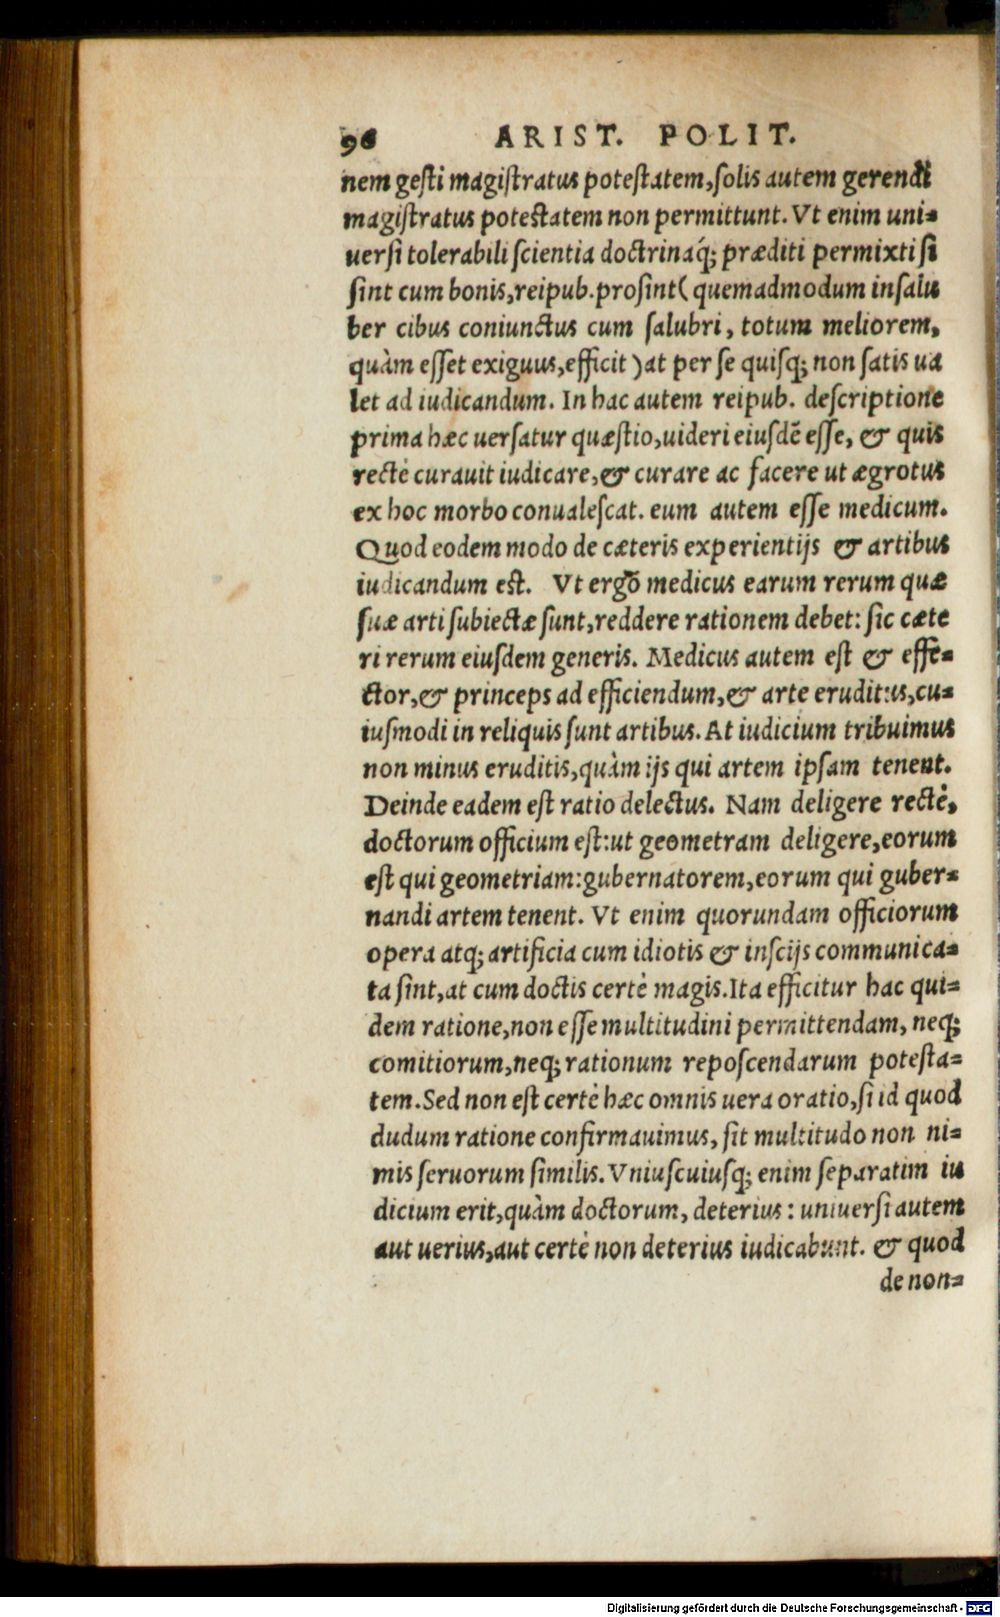 96 ARIST. POLIT.
nem geſti magiſtratus poteſtatem,ſolis autem gerendi
magiſtratus poteſtatem non permittunt. Vt enim uni-
uerſi tolerabili ſcientia doctrinaq́; præditi permixti ſi
ſint cum bonis,reipub.proſint( quemadmodum inſalu
ber cibus coniunctus cum ſalubri, totum meliorem,
quàm eſſet exiguus,efficit ) at per ſe quiſq; non ſatis ua
let ad iudicandum. In hac autem reipub. deſcriptione
prima hæc uerſatur quæſtio,uideri eiuſdē eſſe, & quis
rectè curauit iudicare,& curare ac facere ut ægrotus
ex hoc morbo conualeſcat. eum autem eſſe medicum.
Quod eodem modo de cæteris experientijs & artibus
iudicandum eſt. Vt ergo medicus earum rerum quæ
ſuæ arti ſubiectæ ſunt,reddere rationem debet: ſic cæte
ri rerum eiuſdem generis. Medicus autem eſt & effe-
ctor,& princeps ad efficiendum,& arte eruditus,cu-
iuſmodi in reliquis ſunt artibus. At iudicium tribuimus
non minus eruditis,quàm ijs qui artem ipſam tenent.
Deinde eadem eſt ratio delectus. Nam deligere rectè,
doctorum officium eſt:ut geometram deligere,eorum
eſt qui geometriam:gubernatorem,eorum qui guber-
nandi artem tenent. Vt enim quorundam officiorum
opera atq; artificia cum idiotis & inſcijs communica-
ta ſint,at cum doctis certè magis.Ita efficitur hac qui-
dem ratione,non eſſe multitudini permittendam, neq;
comitiorum,neq; rationum repoſcendarum poteſta-
tem.Sed non eſt certè hæc omnis uera oratio,ſi id quod
dudum ratione confirmauimus, ſit multitudo non ni-
mis ſeruorum ſimilis. Vniuſcuiuſq; enim ſeparatim iu
dicium erit,quàm doctorum, deterius : uniuerſi autem
aut uerius,aut certè non deterius iudicabunt. & quod
de non-
Digitalisierung gefördert durch die Deutsche Forschungsgemeinschaft - DFG